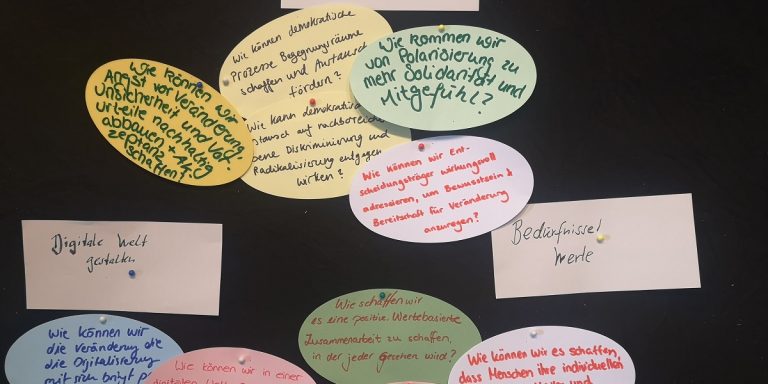 Wie können demokratische
Prozesse Begegnungsräume
schaffen und Austausch
fördern?
Wie kommen wir
von Polarisierung zu
mehr Solidarität und
Mitgefühl?
Wie können wir
Angst vor Veränderung,
Unsicherheit und Vor-
urteile nachhaltig
abbauen +
zeptanz
schaffen?
Wie kann demokratisch
austausch auf nachbarschaf
ebene Diskriminierung und
Radikalisierung entgegen
wirken?
Wie können wir Ent-
scheidungsträger wirkungsvoll
adressieren, um Bewusstsein &
Bereitschaft für Veränderung
anzuregen?
Digitale Welt
gestalten
Bedürfnisse/
Werte
Wie können wir
die Veränderung die
die Digitalisierung
mit sich bringt
Wie können wir in einer
digitalen
Wie schaffen wir
es eine positive Wertebasierte
Zusammenarbeit zu schaffen,
in der jeder gesehen wird?
Wie können wir es schaffen,
dass Menschen ihre individuellen
und